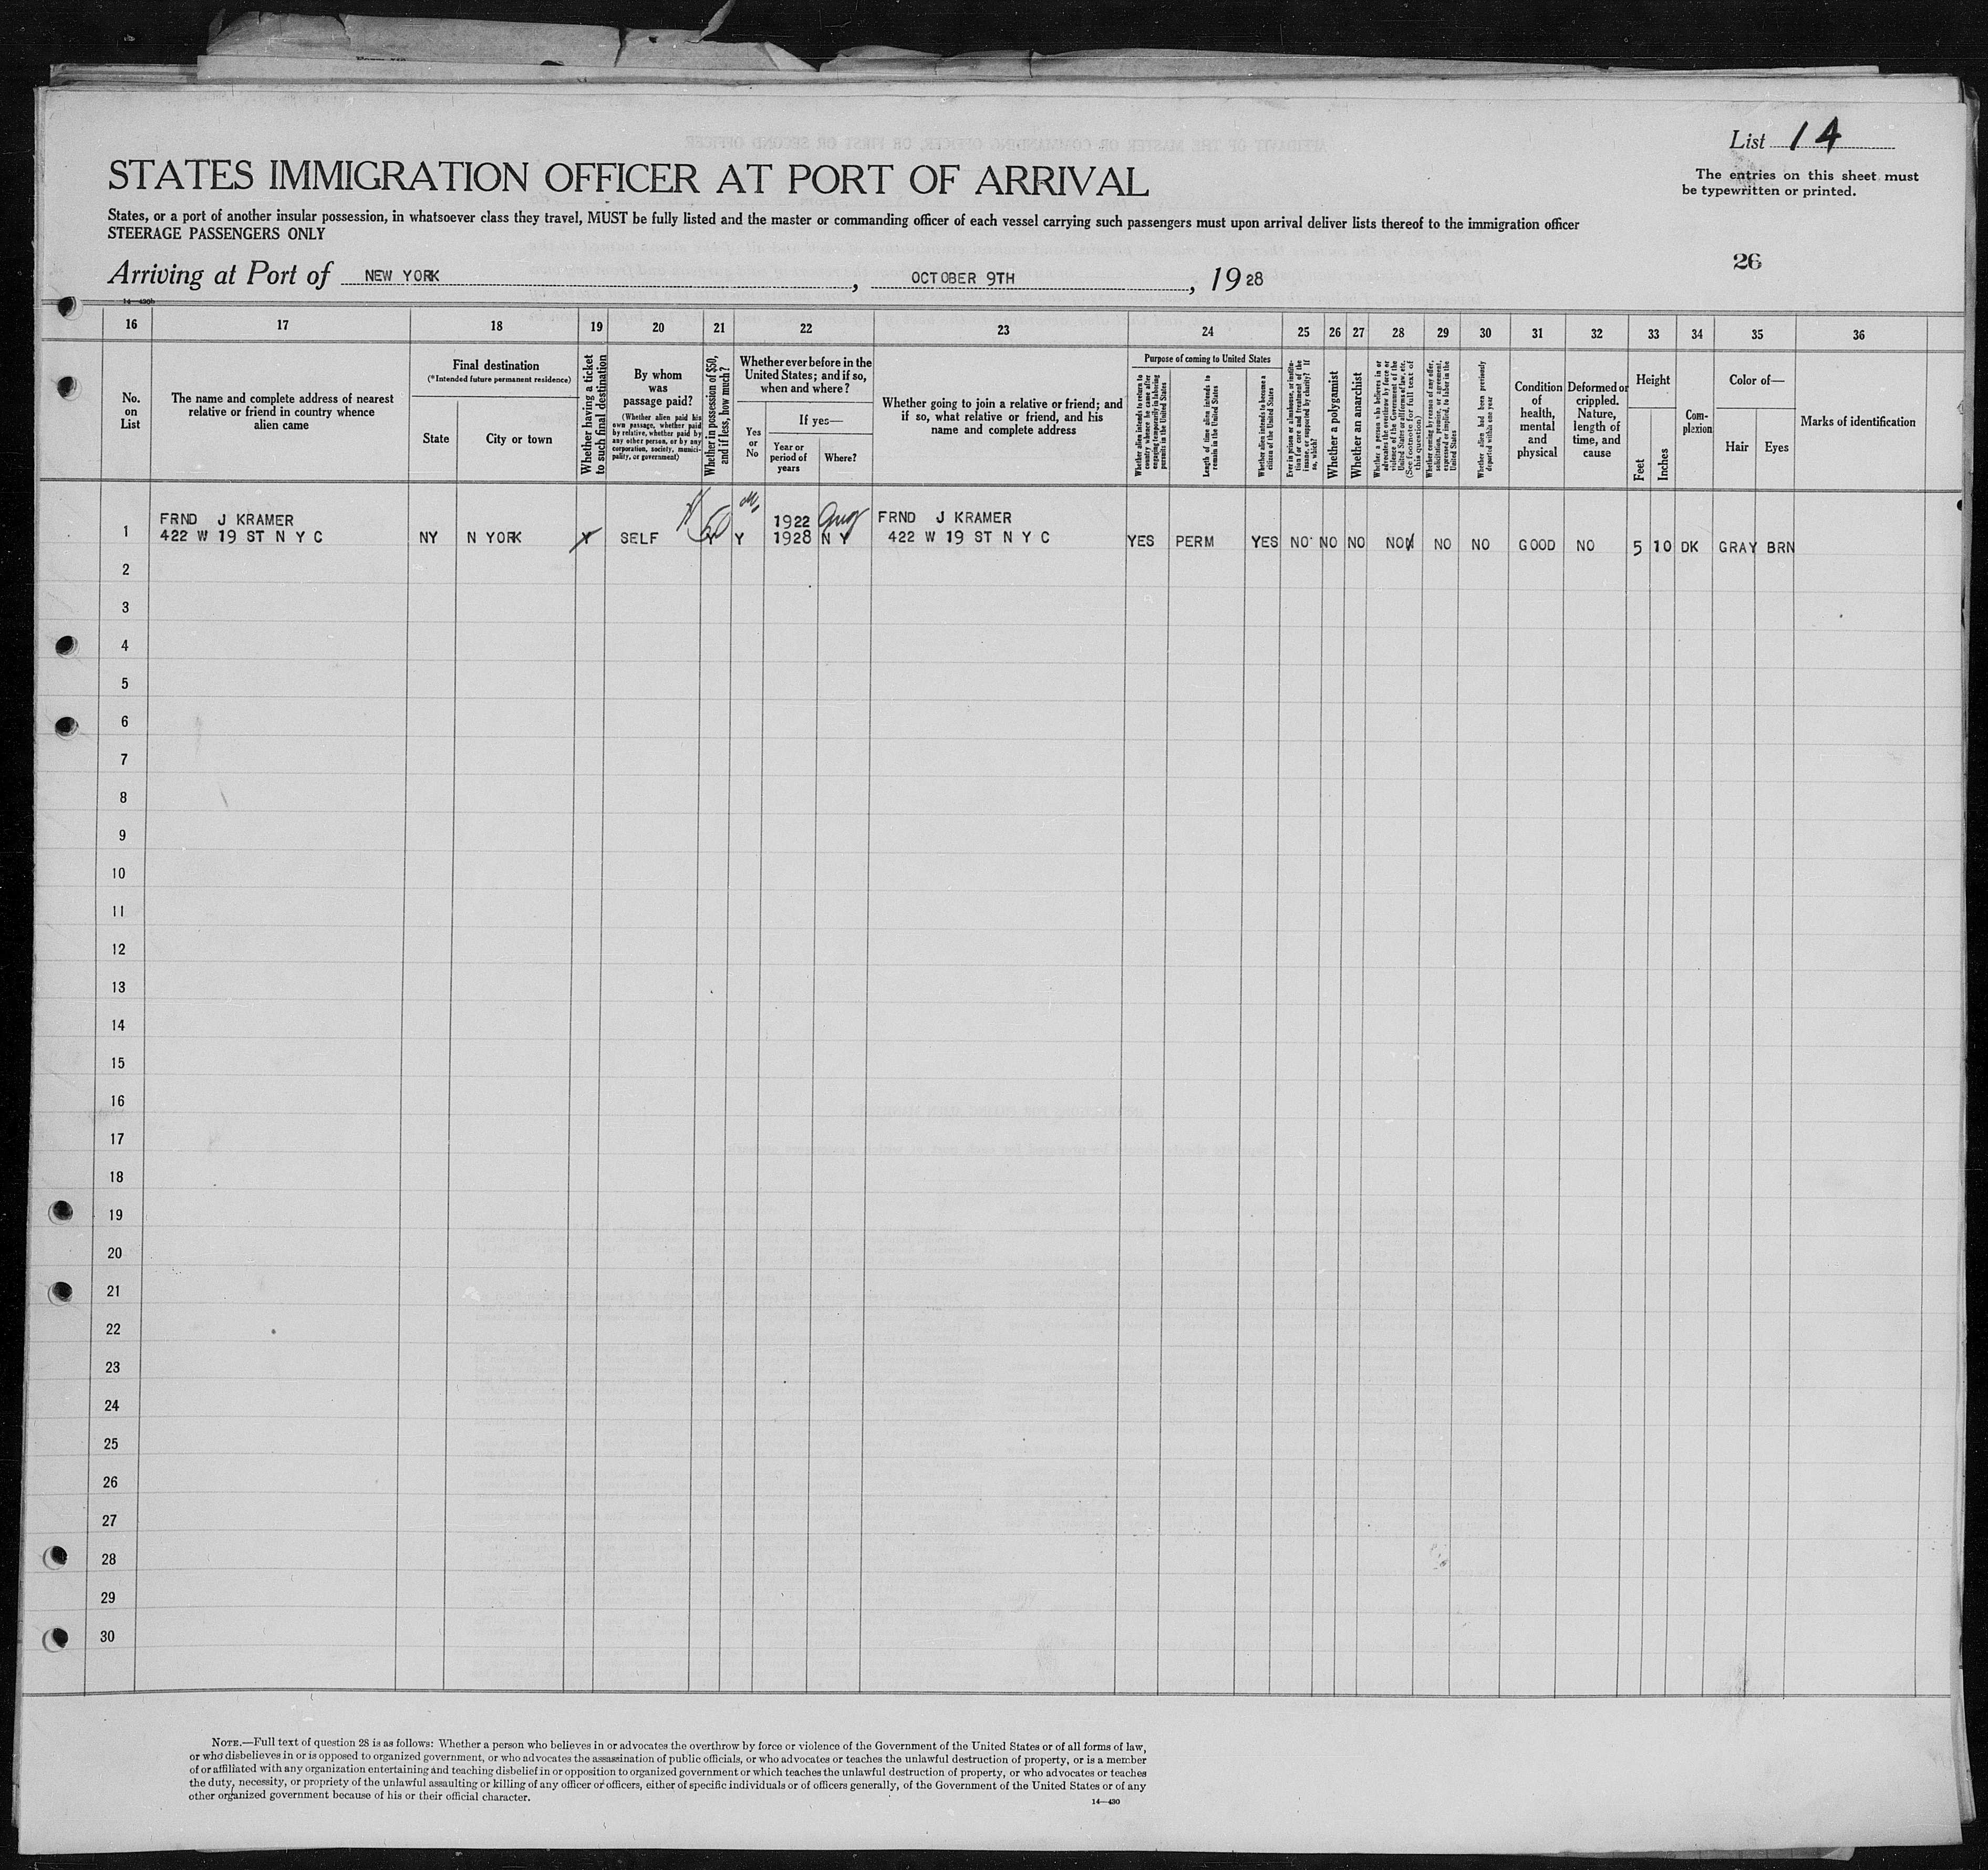 List 14
STATES IMMIGRATION OFFICER AT PORT OF ARRIVAL
The entries on this sheet must
be typewritten or printed.
States, or a port of another insular possession, in whatsoever class they travel, MUST be fully listed and the master or commanding officer of each vessel carrying such passengers must upon arrival deliver lists thereof to the immigration officer
STEERAGE PASSENGERS ONLY
26
Arriving at Port of NEW YORK, OCTOBER 9TH, 1928
14—430b
16 17 18 19 20 21 22 23 24 25 26 27 28 29 30 31 32 33 34 35 36
No.
on
List
The name and complete address of nearest
relative or friend in country whence
alien came
Final destination
(*Intended future permanent residence)
State
City or town
Whether having a ticket
to such final destination
By whom
was
passage paid?
(Whether alien paid his
own passage, whether paid
by relative, whether paid by
any other person, or by any
corporation, society, munici-
pality, or government)
Whether in possession of $50,
and if less, how much?
Whether ever before in the
United States; and if so,
when and where?
Yes
or
No
If yes—
Year or
period of
years
Where?
Whether going to join a relative or friend; and
if so, what relative or friend, and his
name and complete address
Purpose of coming to United States
Whether alien intends to return to
country whence he came after
engaging temporarily in laboring
pursuits in the United States
Length of time alien intends to
remain in the United States
Whether alien intends to become a
citizen of the United States
Ever in prison or almshouse, or institu-
tion for care and treatment of the
insane, or supported by charity? If
so, which?
Whether a polygamist
Whether an anarchist
Whether a person who believes in or
advocates the overthrow by force or
violence of the Government of the
United States or all forms of law, etc.
(See footnote for full text of
this question)
Whether coming by reason of any offer,
solicitation, promise, or agreement,
expressed or implied, to labor in the
United States
Whether alien had been previously
deported within one year
Condition
of
health,
mental
and
physical
Deformed or
crippled.
Nature,
length of
time, and
cause
Height
Feet
Inches
Com-
plexion
Color of—
Hair
Eyes
Marks of identification
FRND J KRAMER 1922 FRND J KRAMER
1 422 W 19 ST N Y C NY N YORK Y SELF 50 Y Y 1928 N Y 422 W 19 ST N Y C YES PERM YES NO NO NO NO NO NO GOOD NO 5 10 DK GRAY BRN
2
3
4
5
6
7
8
9
10
11
12
13
14
15
16
17
18
19
20
21
22
23
24
25
26
27
28
29
30
NOTE.—Full text of question 28 is as follows: Whether a person who believes in or advocates the overthrow by force or violence of the Government of the United States or of all forms of law,
or who disbelieves in or is opposed to organized government, or who advocates the assassination of public officials, or who advocates or teaches the unlawful destruction of property, or is a member
of or affiliated with any organization entertaining and teaching disbelief in or opposition to organized government or which teaches the unlawful destruction of property, or who advocates or teaches
the duty, necessity, or propriety of the unlawful assaulting or killing of any officer or officers, either of specific individuals or of officers generally, of the Government of the United States or of any
other organized government because of his or their official character.
14—430